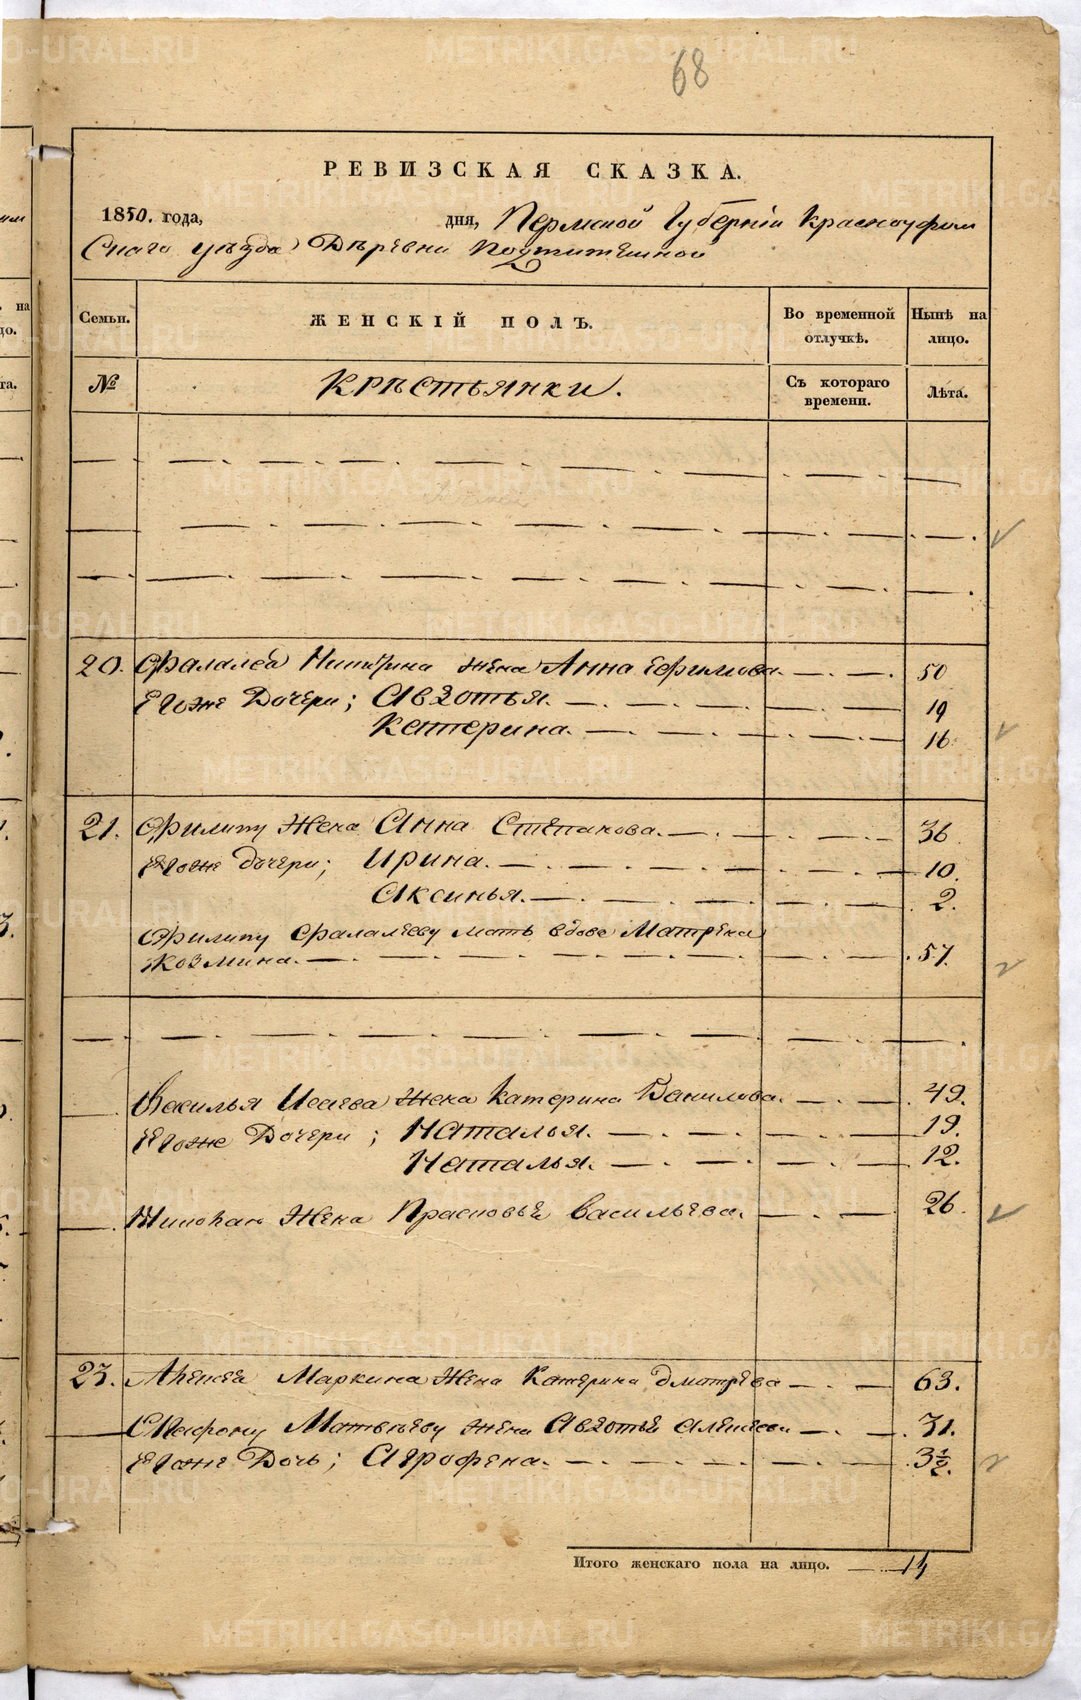 68
РЕВИЗСКАЯ СКАЗКА.
1850. года, дня, Пермской Губернiи Красноуфим
Скаго уѣзда Дѣревни
Семьи. ЖЕНСКIЙ ПОЛЪ. Во временной отлучкѣ. Нынѣ на лицо.
№ Крѣстьянки. Съ котораго времени. Лѣта.
20. Фалалѣа Никитина жена Анна Ефимова. 50
Егоже Дочери; Авдотья. 19
Катерина. 16
21. Филипу Жена Анна Степанова. 36
Егоже дочери; Ирина. 10.
Аксинья. 2.
Филипу Фалалѣеву мать вдова Матрена
Козмина. 57.
Василья Исаева жена Катерина Данилова. 49.
Егоже Дочери; Наталья. 19.
Наталья. 12.
Жена Прасковья Васильева. 26.
23. Алексѣя Маркина Жена Катерина Дмитрева 63.
Матвѣеву жена Авдотья 31.
Егоже Дочь; Аграфена. 3½.
Итого женскаго пола на лицо. 14
METRIKI.GASO-URAL.RU